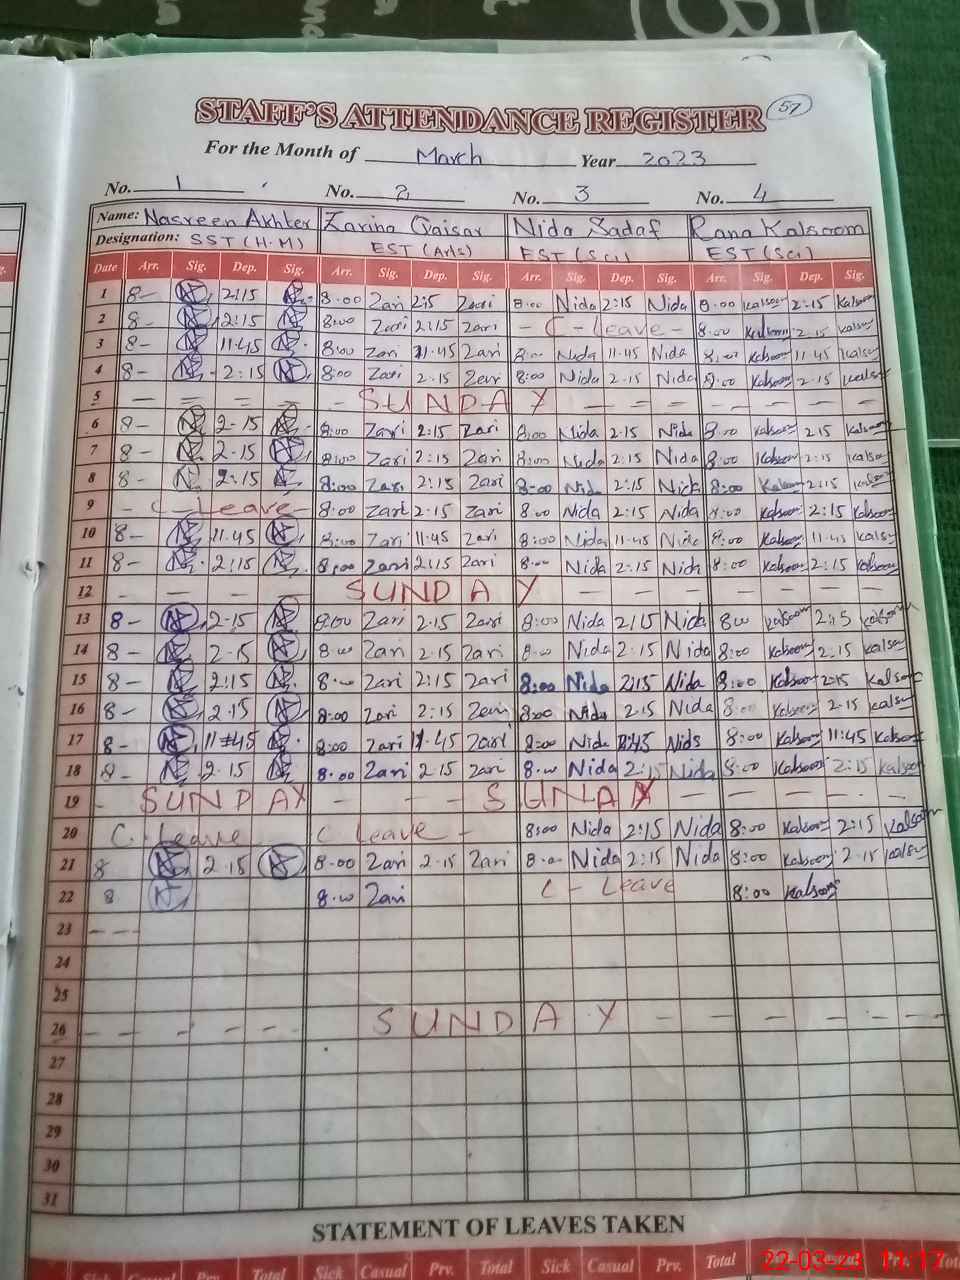 57
STAFF'S ATTENDANCE REGISTER
For the Month of March Year 2023
No. 1 No. 2 No. 3 No. 4
Name: Nasreen Akhter Zarina Qaisar Nida Sadaf Rana Kalsoom
Designation: SST (H.M) EST (Arts) EST (Sci) EST (Sci)
Date Arr. Sig. Dep. Sig. Arr. Sig. Dep. Sig. Arr. Sig. Dep. Sig. Arr. Sig. Dep. Sig.
1 8- 2:15 8:00 Zari 2:5 Zari 8:00 Nida 2:15 Nida 8:00 Kalsoom 2:15 Kalsoom
2 8- 2:15 8:00 Zari 2:15 Zari - C - Leave - 8:00 Kalsoom 2:15 Kalsoom
3 8- 11.45 8:00 Zari 11.45 Zari 8:00 Nida 11.45 Nida 8:00 Kalsoom 11.45 Kalsoom
4 8- 2:15 8:00 Zari 2.15 Zari 8:00 Nida 2.15 Nida 8:00 Kalsoom 2.15 Kalsoom
5 SUNDAY
6 8- 2-15 8:00 Zari 2:15 Zari 8:00 Nida 2.15 Nida 8:00 Kalsoom 2.15 Kalsoom
7 8- 2.15 8:00 Zari 2:15 Zari 8:00 Nida 2:15 Nida 8:00 Kalsoom 2:15 Kalsoom
8 8- 2:15 8:00 Zari 2:15 Zari 8:00 Nida 2:15 Nida 8:00 Kalsoom 2:15 Kalsoom
9 - C - Leave - 8:00 Zari 2.15 Zari 8:00 Nida 2:15 Nida 8:00 Kalsoom 2:15 Kalsoom
10 8- 11.45 8:00 Zari 11.45 Zari 8:00 Nida 11.45 Nida 8:00 Kalsoom 11.45 Kalsoom
11 8- 2:15 8:00 Zari 2:15 Zari 8:00 Nida 2:15 Nida 8:00 Kalsoom 2:15 Kalsoom
12 SUNDAY
13 8- 2.15 8:00 Zari 2.15 Zari 8:00 Nida 2:15 Nida 8:00 Kalsoom 2:15 Kalsoom
14 8- 2.15 8:00 Zari 2.15 Zari 8:00 Nida 2:15 Nida 8:00 Kalsoom 2:15 Kalsoom
15 8- 2:15 8:00 Zari 2:15 Zari 8:00 Nida 2:15 Nida 8:00 Kalsoom 2:15 Kalsoom
16 8- 2.15 8:00 Zari 2:15 Zari 8:00 Nida 2.15 Nida 8:00 Kalsoom 2.15 Kalsoom
17 8- 11:45 8:00 Zari 11.45 Zari 8:00 Nida 11:45 Nida 8:00 Kalsoom 11:45 Kalsoom
18 8- 2.15 8.00 Zari 2.15 Zari 8:00 Nida 2:15 Nida 8:00 Kalsoom 2:15 Kalsoom
19 - SUNDAY - - - SUNAY
20 C. Leave C Leave - 8:00 Nida 2:15 Nida 8:00 Kalsoom 2:15 Kalsoom
21 8 2.15 8.00 Zari 2.15 Zari 8:00 Nida 2:15 Nida 8:00 Kalsoom 2.15 Kalsoom
22 8 8:00 Zari C - Leave 8:00 Kalsoom
23 - - -
24
25
26 SUNDAY
27
28
29
30
31
STATEMENT OF LEAVES TAKEN
Sick Casual Prv. Total Sick Casual Prv. Total Sick Casual Prv. Total
22-03-23 11:17